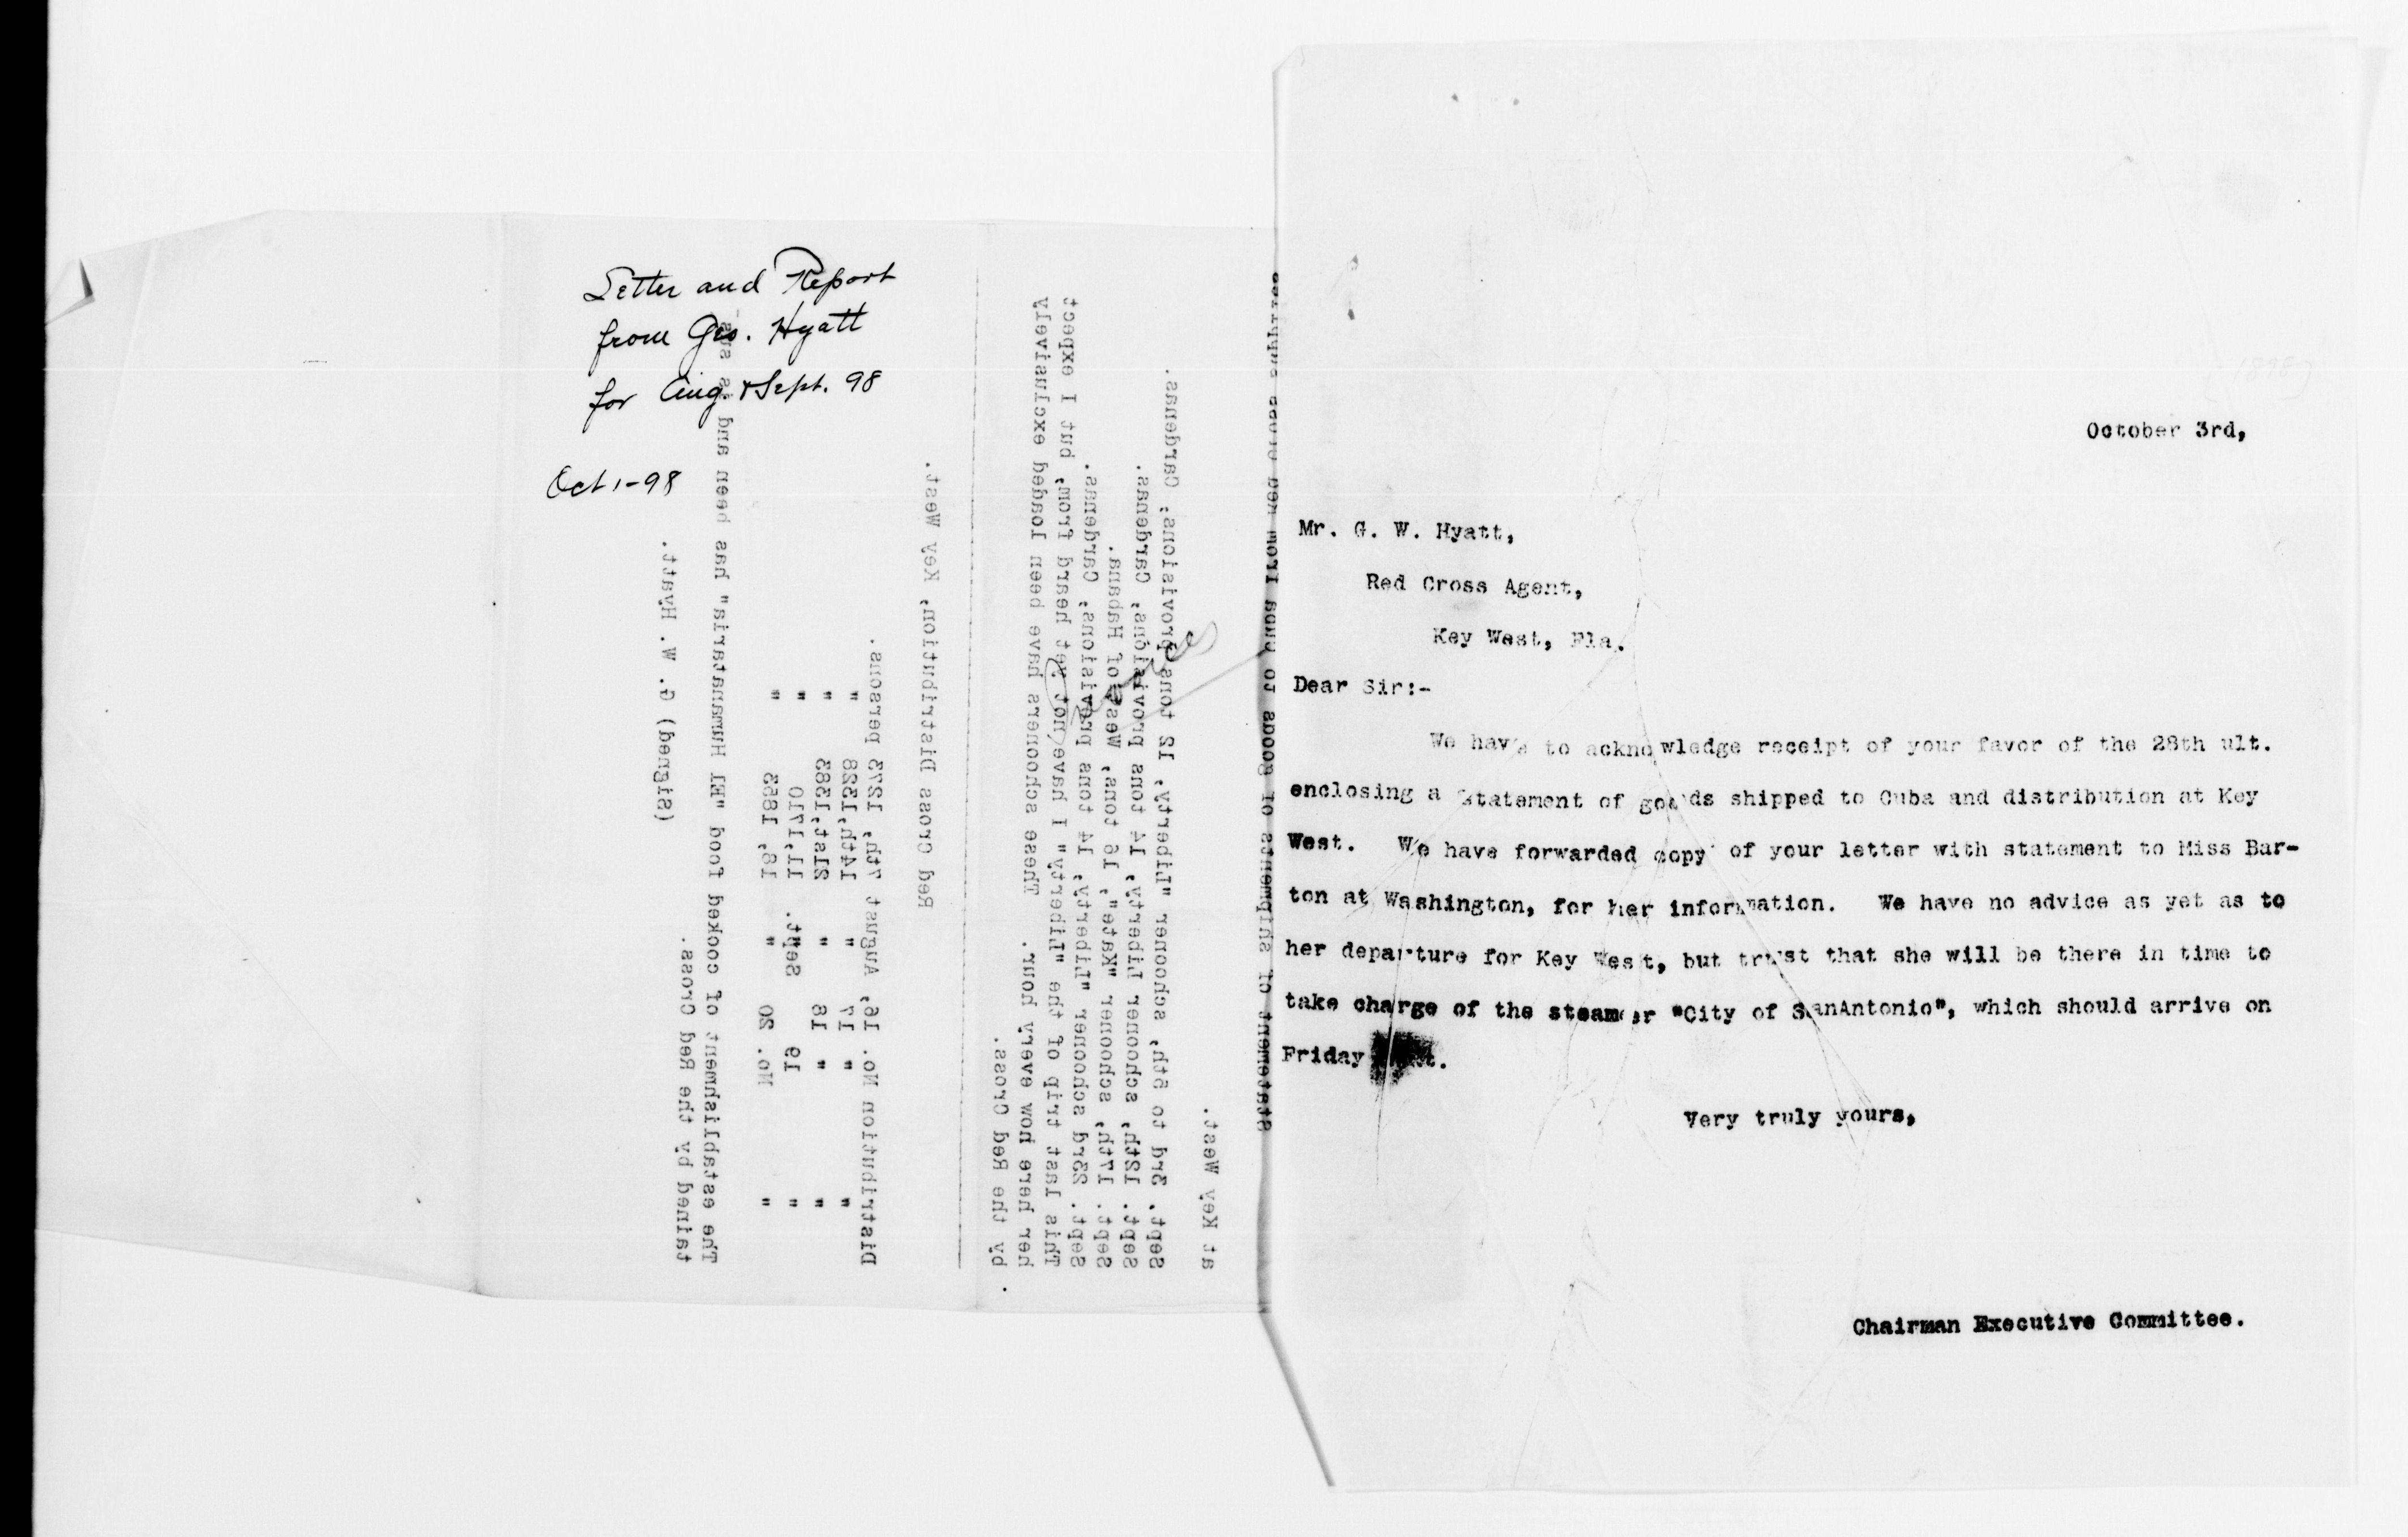 Letter and Report
from Geo. Hyatt
for Aug. & Sept. 98
Oct 1-98
Statement of shipments of goods to Cuba from Red Cross supplies
at Key West.
Sept. 3rd to 5th, schooner "Liberty, 12 tons provisions; Cardenas.
Sept. 12th, schooner Liberty, 14 tons provisions, Cardenas.
Sept. 17th, schooner "Kate", 16 tons, West of Habana.
Sept. 23rd schooner "Liberty, 14 tons provisions, Cardenas.
This last trip of the "Liberty" I have not yet heard from, but I expect
her here now every hour. These schooners have been loaded exclusively
by the Red Cross.
Red Cross Distribution, Key West.
Distribution No. 16, August 7th, 1273 persons.
" " 17 " 14th, 1328 "
" " 18 " 21st, 1383 "
" 19 Sept. 11, 1710 "
" No. 20 " 18, 1853 "
The establishment of cooked food "El Humanataria" has been and is sus-
tained by the Red Cross.
(Signed) G. W. Hyatt.
October 3rd,
Mr. G. W. Hyatt,
Red Cross Agent,
Key West, Fla.
Dear Sir:-
We have to acknowledge receipt of your favor of the 28th ult.
enclosing a statement of goods shipped to Cuba and distribution at Key
West. We have forwarded copy of your letter with statement to Miss Bar-
ton at Washington, for her information. We have no advice as yet as to
her departure for Key West, but trust that she will be there in time to
take charge of the steamer "City of SanAntonio", which should arrive on
Friday
Very truly yours,
Chairman Executive Committee.